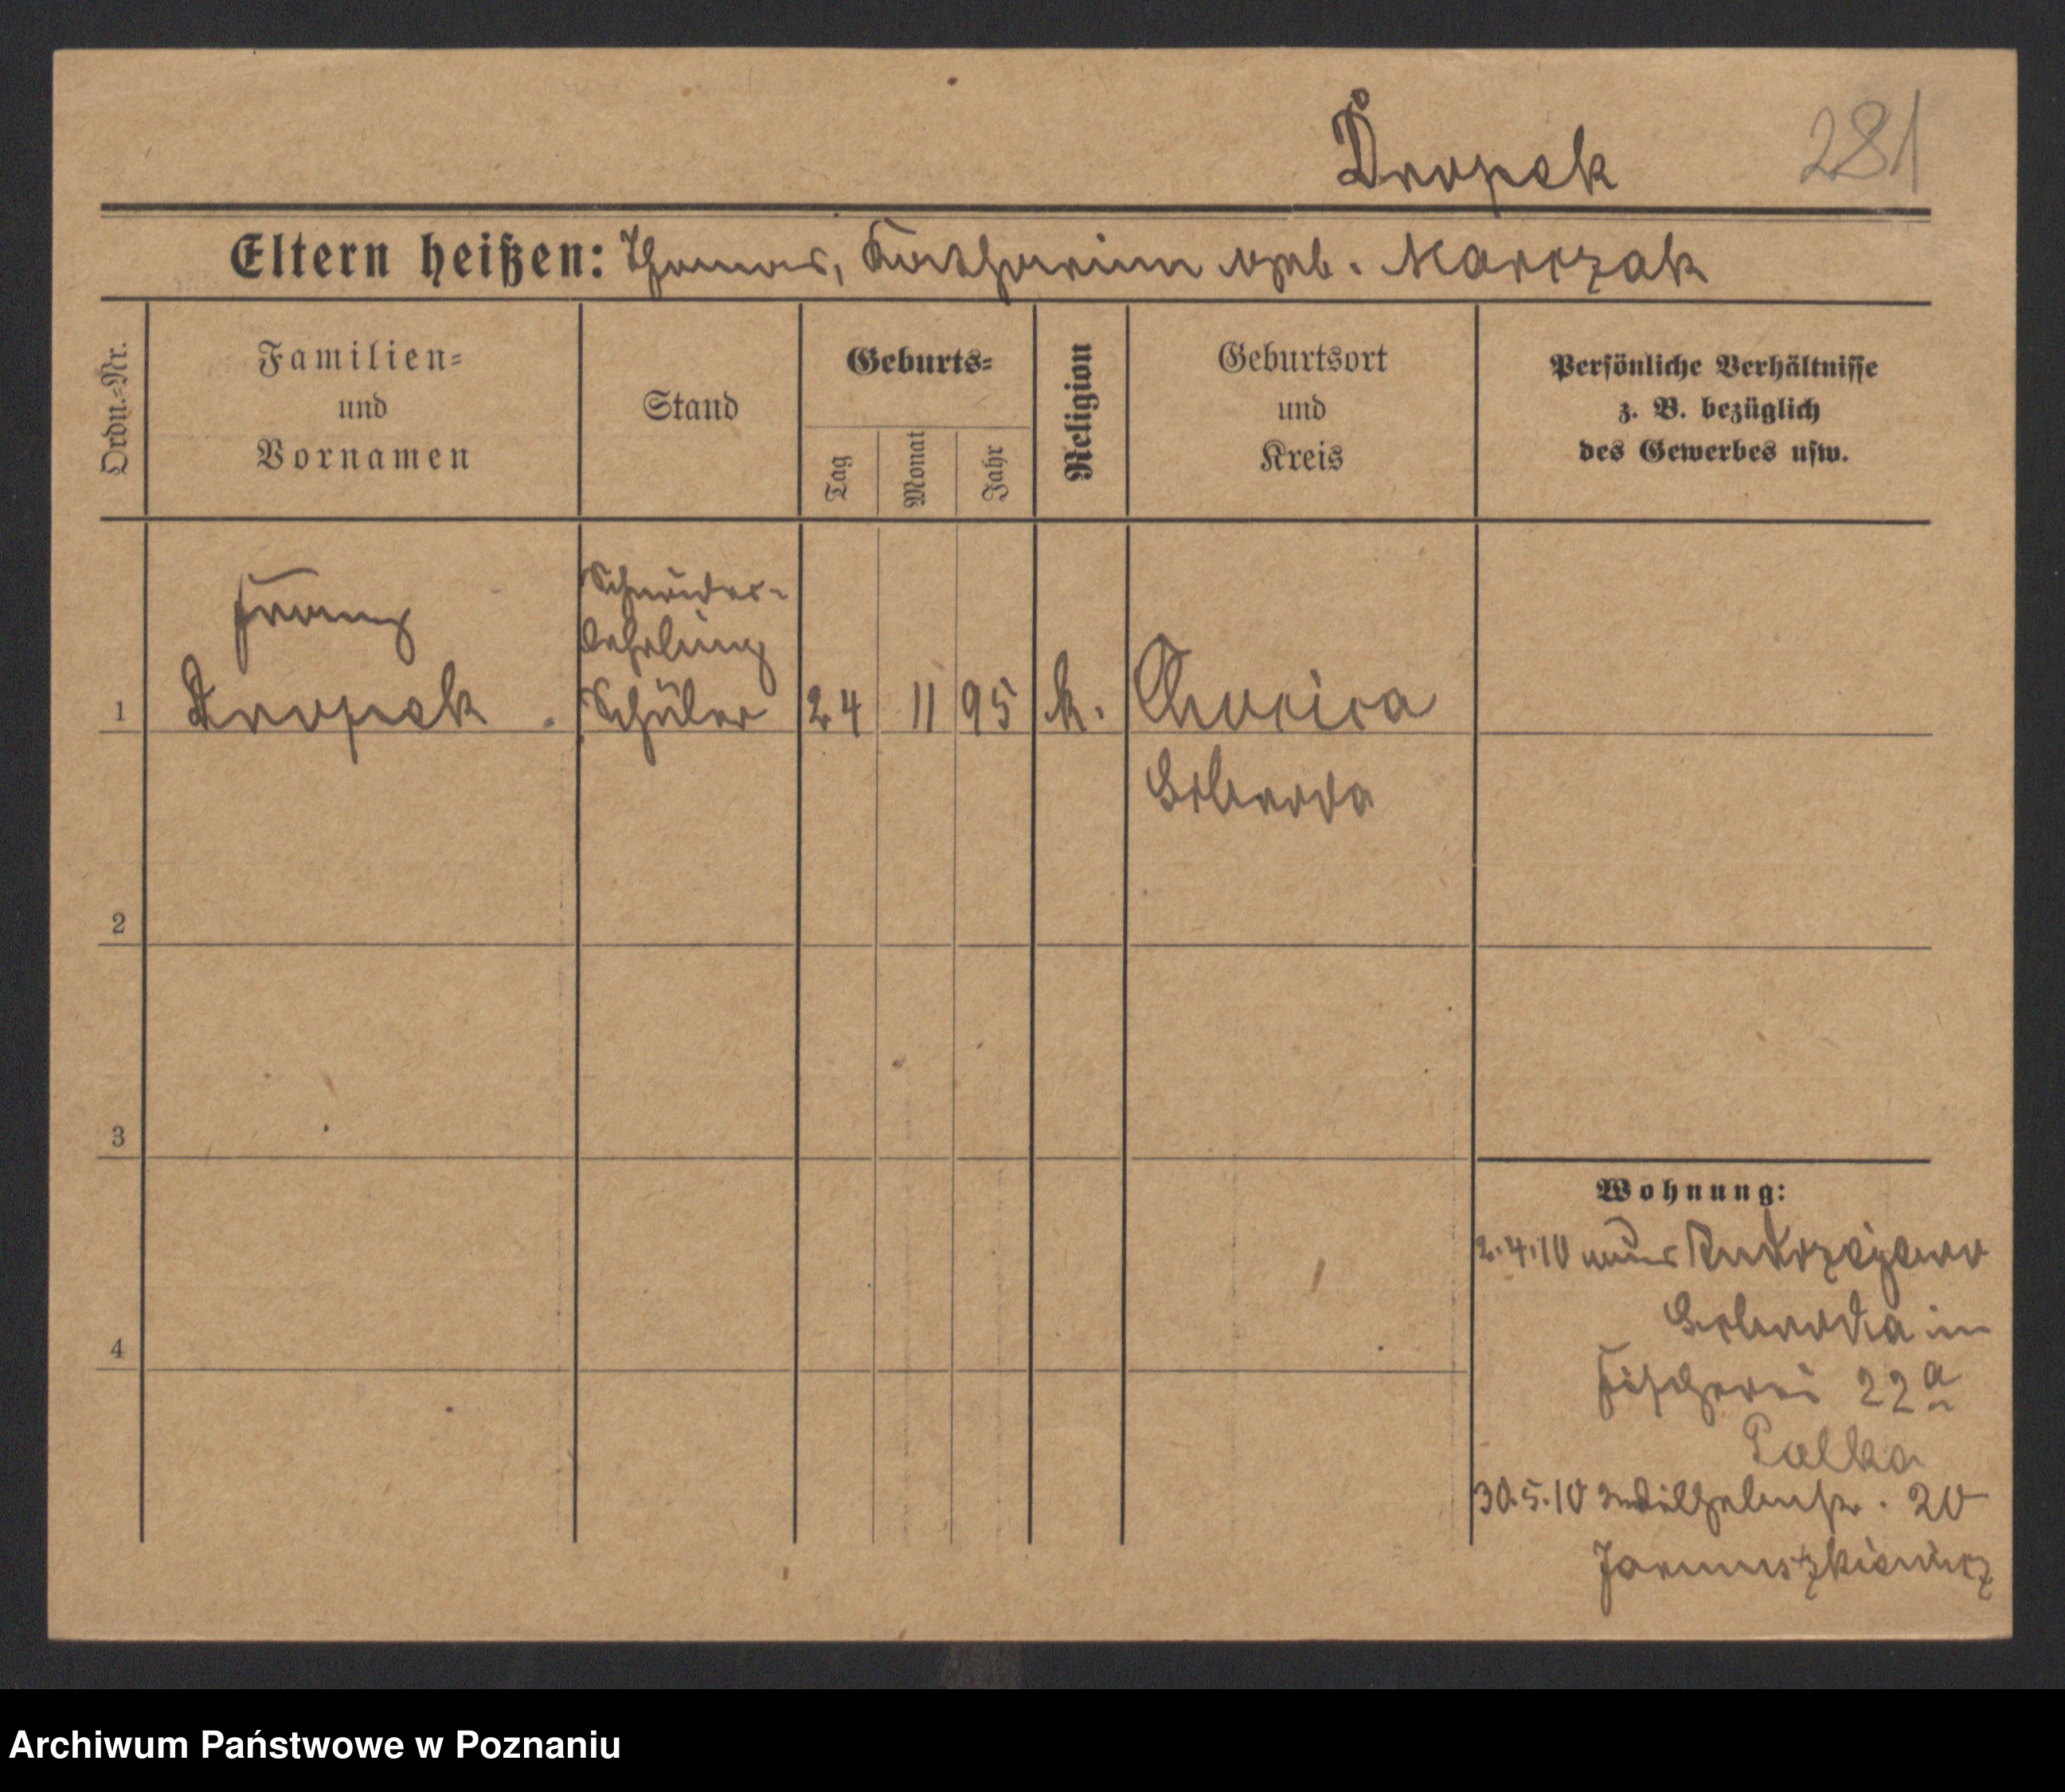 Dropek 281
Eltern heißen: Thomas, Katharina geb. Marczak
Ordn.=Nr.
Familien=
und
Vornamen
Stand
Geburts=
Tag
Monat
Jahr
Religion
Geburtsort
und
Kreis
Persönliche Verhältnisse
z. B. bezüglich
des Gewerbes usw.
Franz
Schneider-
Lehrling
1 Dropek Schüler 24 11 95 k.
Schroda
2
3
4
Wohnung:
2.4.10 aus
Schroda in
Fischerei 22a
Palka
30.5.10 Wilhelmstr. 20
Januszkiewicz
Archiwum Państwowe w Poznaniu